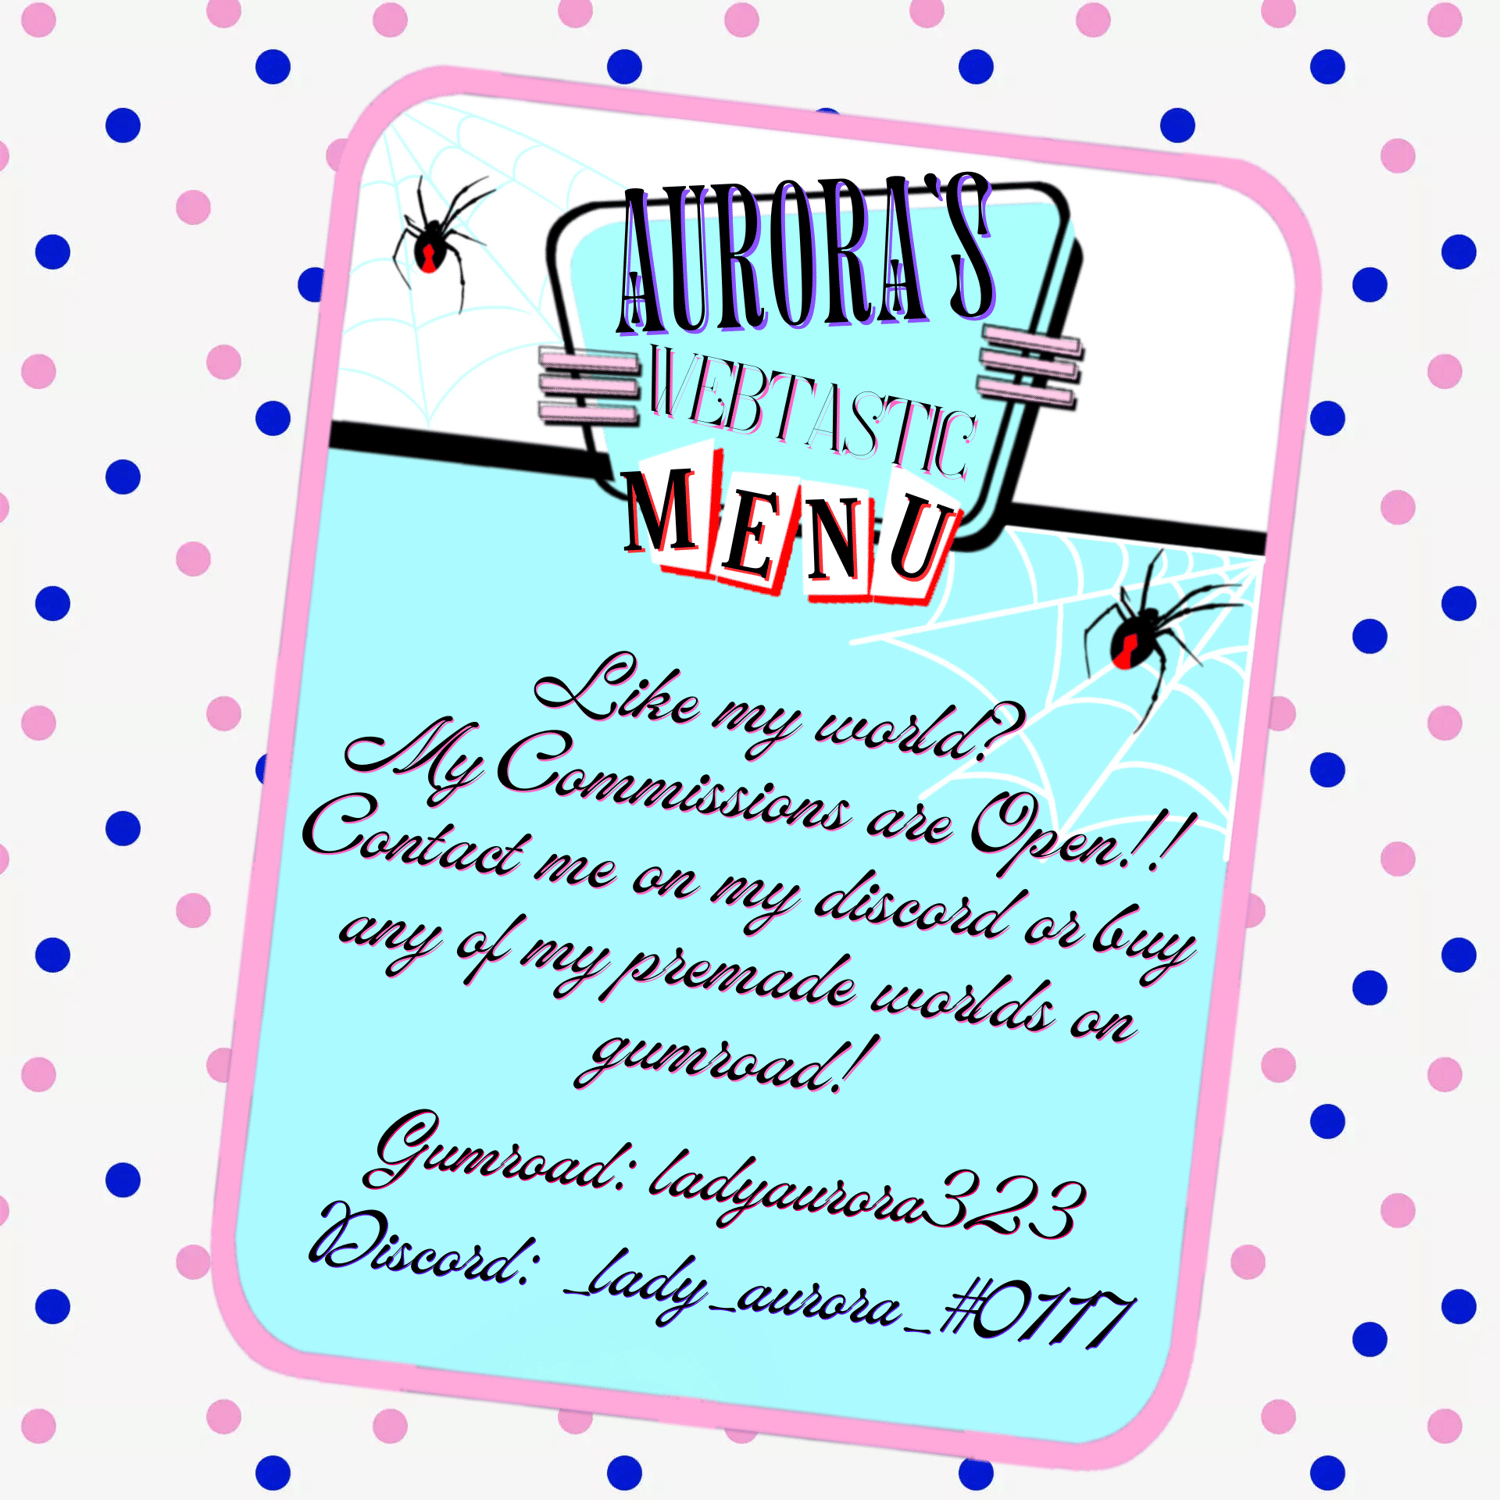 AURORA'S
WEBTASTIC
MENU
Like my world?
My Commissions are Open!!
Contact me on my discord or buy
any of my premade worlds on
gumroad!
Gumroad: ladyaurora323
Discord: _lady_aurora_#0117